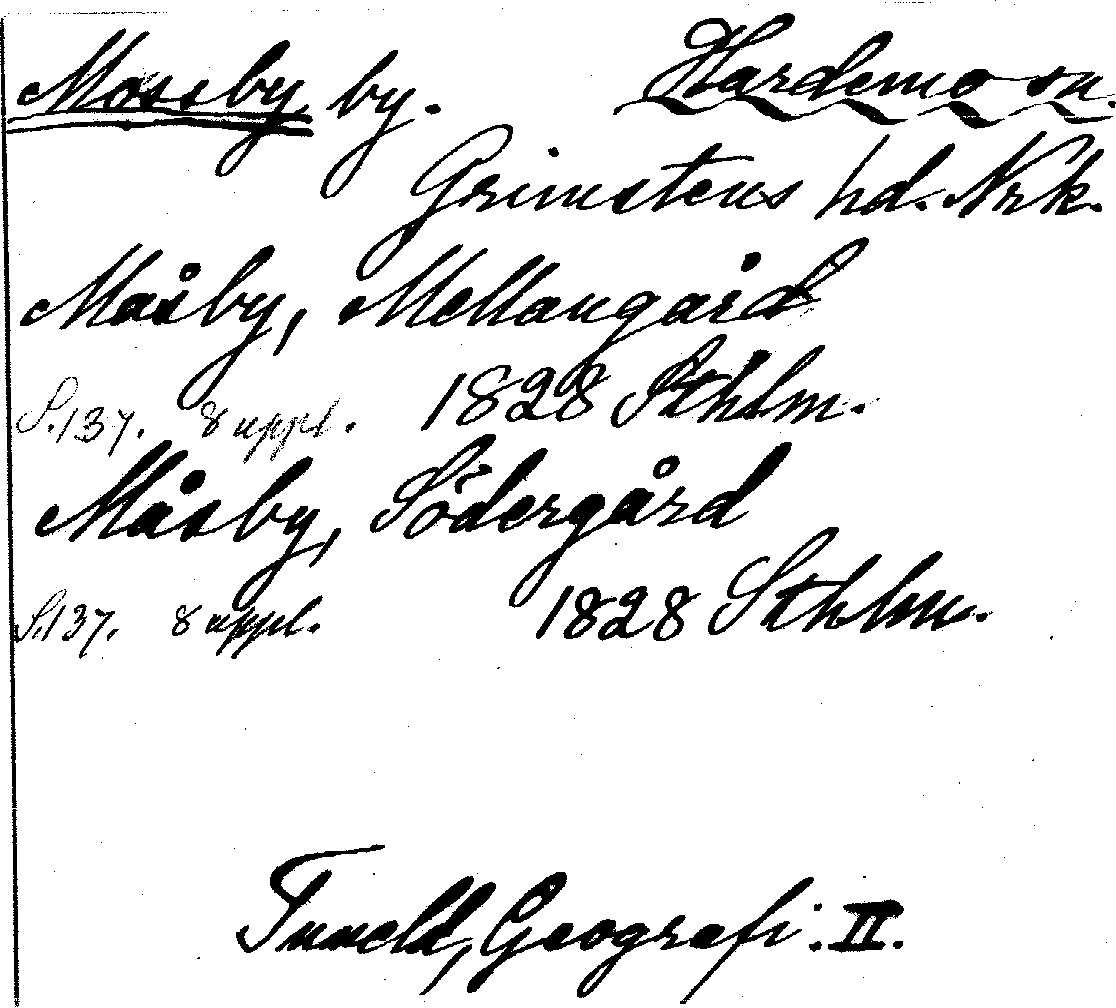 Mossby, by. Hardemo sn.
Grimstens hd. Nrk.
Måsby, Mellangård
S.137. 8 uppl. 1828 Sthlm.
Måsby, Södergård
S.137. 8 uppl. 1828 Sthlm.
Tuneld, Geografi. II.